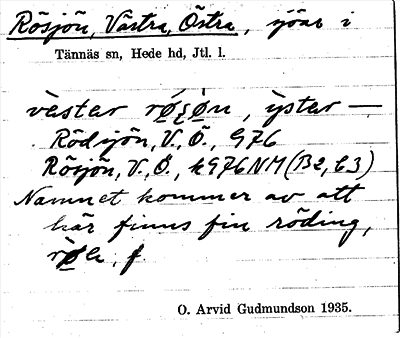 Rösjön, Västra, Östra, sjöar i
Tännäs sn, Hede hd, Jtl. l.
västar røʂøn, ystar —
Rödsjön, V., Ö., G76
Rösjön, V., Ö., kG76NM(B2, C3)
Namnet kommer av att
här finns fin röding,
f
O. Arvid Gudmundson 1935.